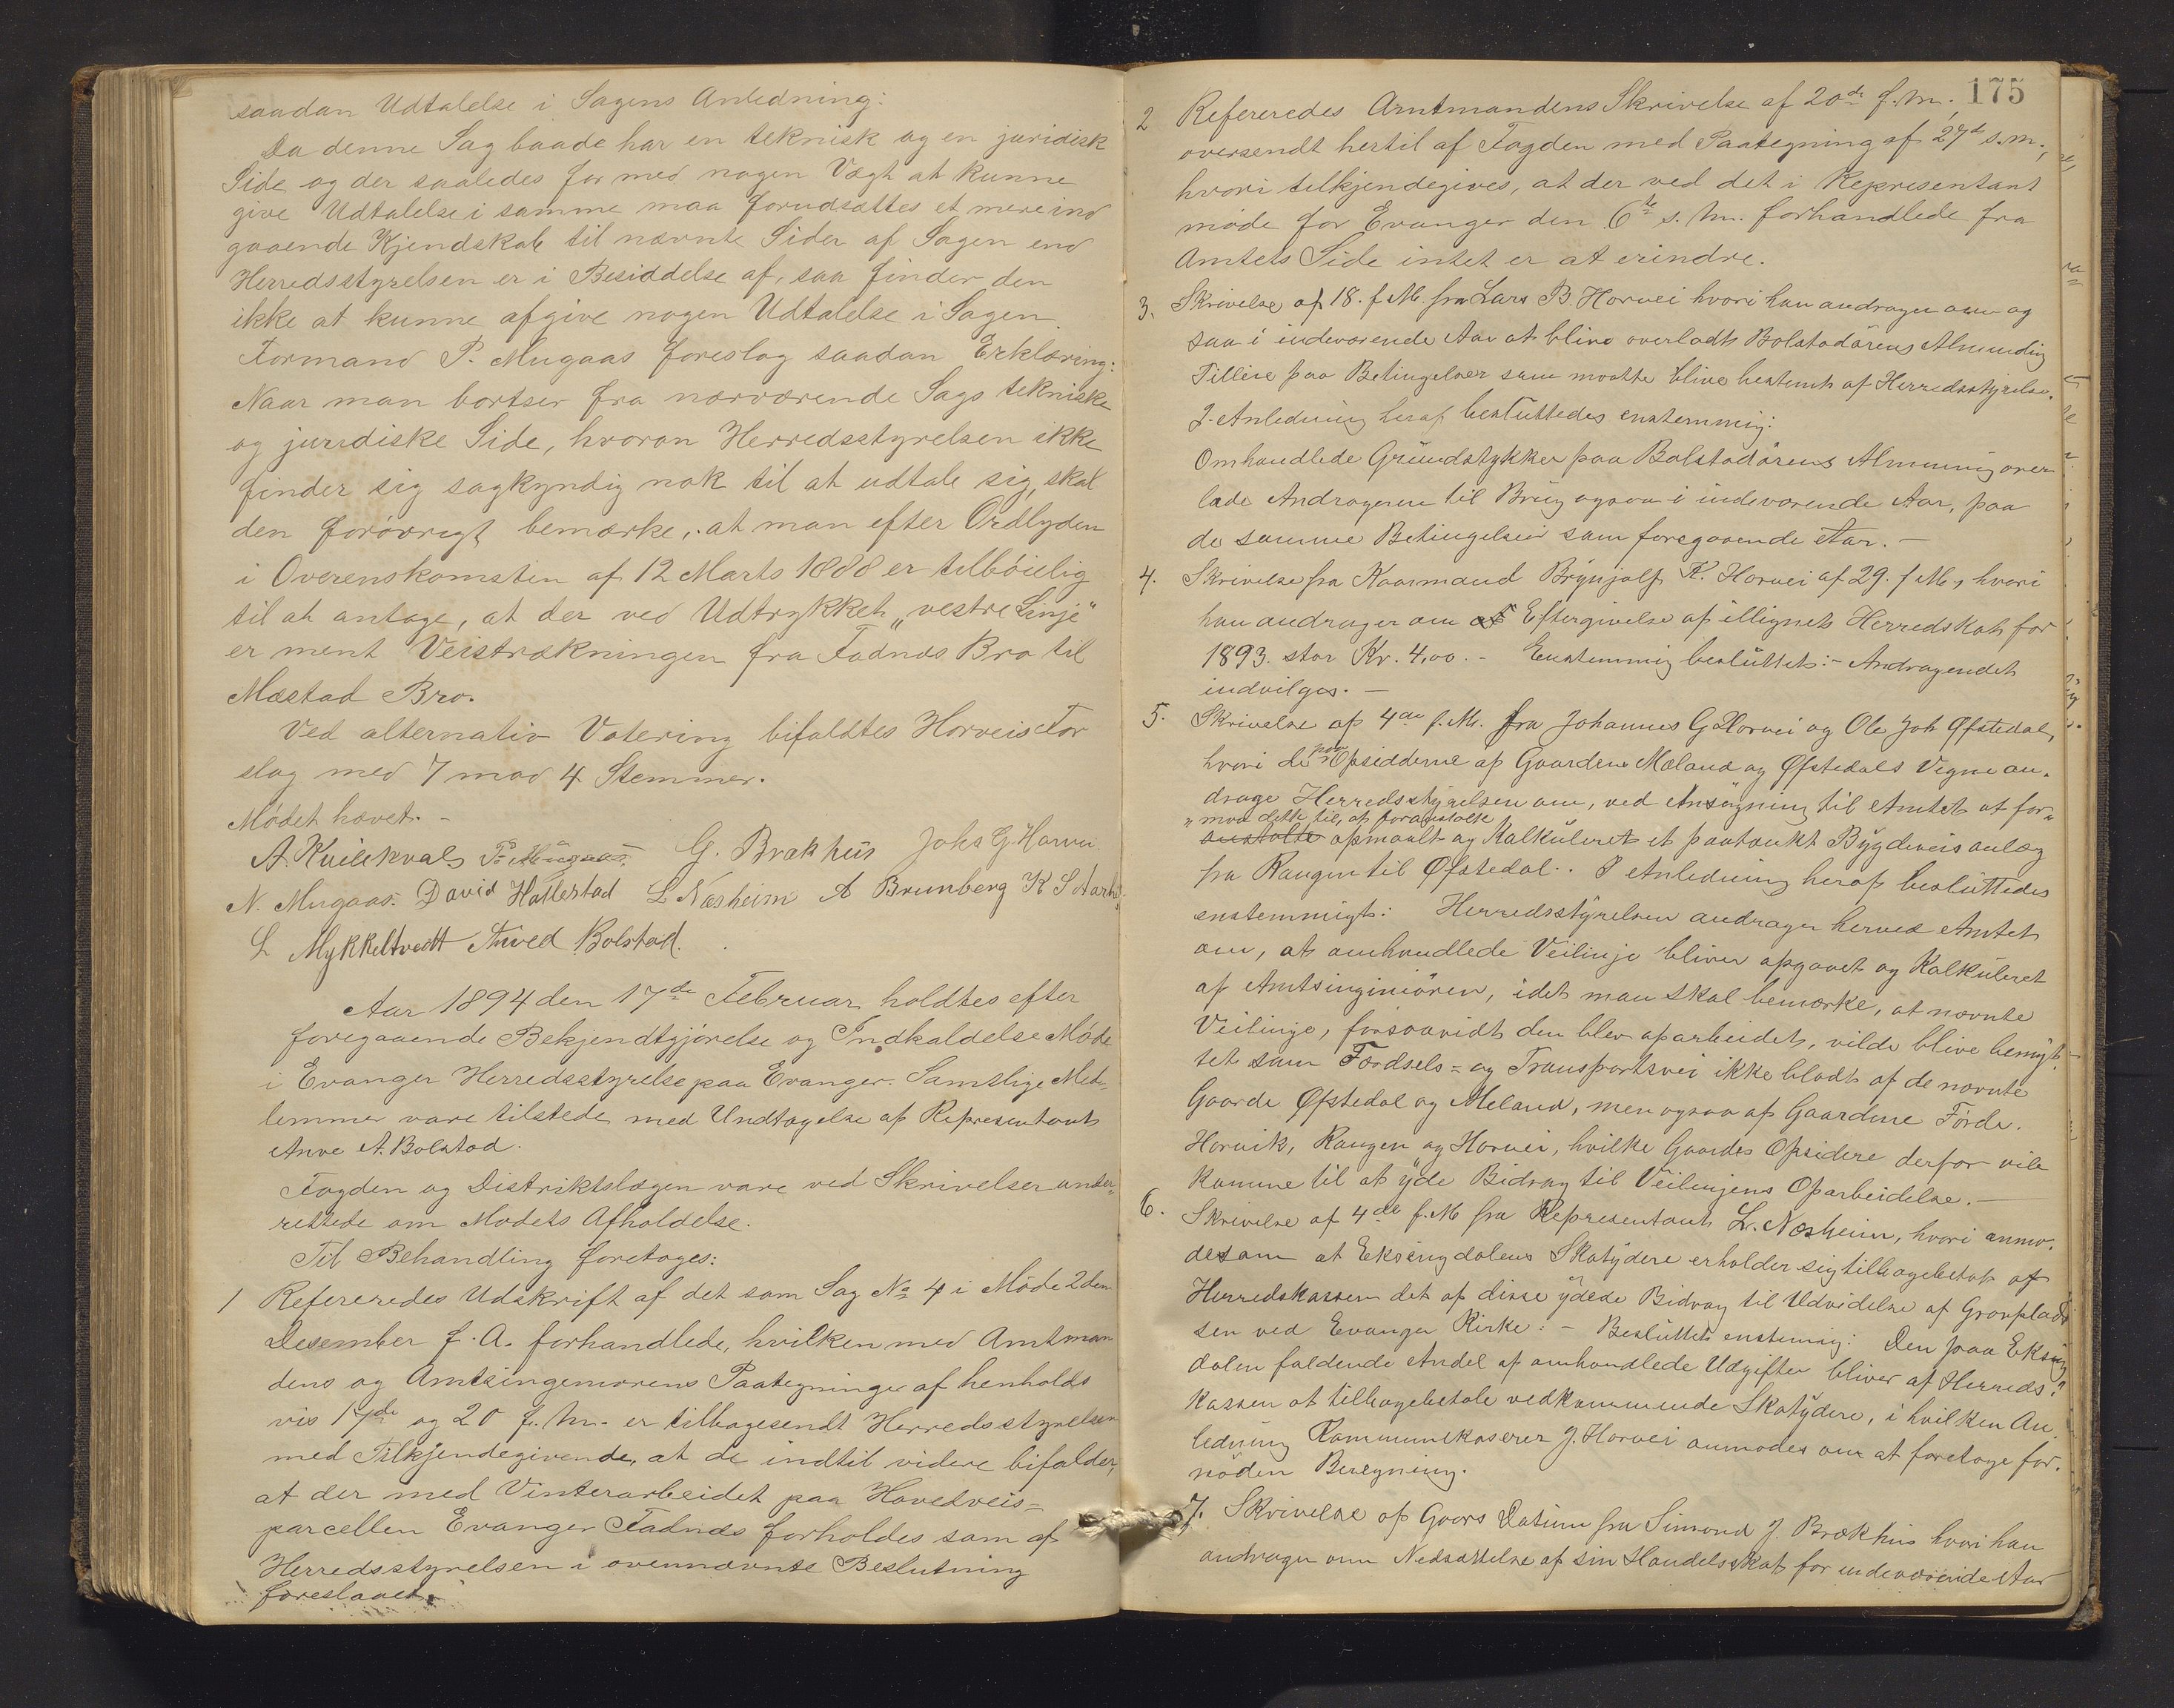 saadan Udtalelse i Sagens Anledning:
Da denne Sag baade har en teknisk og en juridisk
Side og der saaledes for med nogen Vægt at kunne
give Udtalelse i samme maa forudsættes et mere ind
gaaende Kjendskab til nævnte Sider af Sagen end
Herredsstyrelsen er i Besiddelse af, saa finder den
ikke at kunne afgive nogen Udtalelse i Sagen.
Formand P. Mugaas foreslog saadan Erklæring:
Naar man bortser fra nærværende Sags tekniske
og juridiske Side, hvoron Herredsstyrelsen ikke
finder sig sagkyndig nok til at udtale sig, skal
den forøvrigt bemærke, at man efter Ordlyden
i Overenskomsten af 12 Marts 1888 er tilbøielig
til at antage, at der ved Udtrykket „vestre Linje"
er ment Veistrækningen fra Fadnæs Bro til
Mæstad Bro.
Ved alternativ Votering bifaldtes Horveis For
slag med 7 mod 4 Stemmer.
Mødet hævet. -
A. Kvilekval P. Mugaas G. Brækhus Johs G. Horvei
N. Mugaas. David Hallestad L Næsheim A Brunberg K S Aarhus
L Mykkeltvedt Anved Bolstad.
Aar 1894 den 17de Februar holdtes efter
foregaaende Bekjendtgjørelse og Indkaldelse Møde
i Evanger Herredsstyrelse paa Evanger. Samtlige Med-
lemmer vare tilstede med Undtagelse af Representant
Anve A. Bolstad.
Fogden og Distriktslægen vare ved Skrivelser under-
rettede om Mødets Afholdelse.
Til Behandling foretages:
1 Refereredes Udskrift af det som Sag No 4 i Møde 2den
Desember f. A. forhandlede, hvilken med Amtman
dens og Amtsingeniørens Paategninger af henholds
vis 17de og 20 f. M. er tilbagesendt Herredsstyrelsen
med Tilkjendegivende, at de indtil videre bifalder,
at der med Vinterarbeidet paa Hovedveis=
parcellen Evanger Fadnæs forholdes som af
Herredsstyrelsen i ovennævnte Beslutning
foreslaaet.
175
2 Refereredes Amtmandens Skrivelse af 20de f. M.,
oversendt hertil af Fogden med Paategning af 27de s. m.,
hvori tilkjendegives, at der ved det i Representant
møde for Evanger den 6te s. M. forhandlede fra
Amtets Side intet er at erindre.
3. Skrivelse af 18. f. M. fra Lars B. Horvei hvori han andrager om og
saa i indeværende Aar at blive overladt Bolstadørens Almunding
Tilleie paa Betingelser som maatte blive bestemt af Herredsstyrelse.
I Anledning heraf besluttedes enstemmig:
Omhandlede Grundstykker paa Bolstadørens Almuning over
lade Andrageren til Brug ogsaa i indeværende Aar, paa
de samme Betingelser som foregaaende Aar. -
4. Skrivelse fra Kaarmand Brynjolf K. Horvei af 29. f M, hvori
han andrager om Eftergivelse af illignet Herredskat for
1893. stor Kr. 4,00. - Enstemmig besluttet: - Andragendet
indvilges. -
5. Skrivelse af 4de f. M. fra Johannes G Horvei og Ole Joh Øfstedal,
hvori de paa Opsidderne af Gaardene Mæland og Øfstedals Vegne an-
drage Herredsstyrelsen om, ved Ansøgning til Amtet at for-
„mod dette til, at foranstalte
anstalte opmaalt og Kalkuleret et paatænkt Bygdeveis anlæg
fra Raugen til Øfstedal. I Anledning heraf besluttedes
enstemmigt: Herredsstyrelsen andrager herved Amtet
om, at omhandlede Veilinje bliver opgaaet og Kalkuleret
af Amtsinginiøren, idet man skal bemærke, at nævnte
Veilinje, forsaavidt den blev oparbeidet, vilde blive benyt-
tet som Færdsels= og Transportsvei ikke blodt af de nævnte
Gaarde Øfstedal og Meland, men ogsaa af Gaardene Førde.
Horvik, Raugen og Horvei, hvilke Gaardes Opsidere derfor vile
komme til at yde Bidrag til Veilinjens Oparbeidelse. -
6. Skrivelse af 4de f. M fra Representant L. Næsheim, hvori anmo-
des om at Eksingdalens Skatydere erholder sig tilbagebetalt af
Herredskassen det af disse ydede Bidrag til Udvidelse af Gravplads
sen ved Evanger Kirke: - Besluttet enstemig: Den paa Eksing
dalen faldende Andel af omhandlede Udgifter bliver af Herreds-
kassen at tilbagebetale vedkommende Skatydere, i hvilken An-
ledning Kommunekaserer J. Horvei anmodes om at foretage for-
nøden Beregning.
7. Skrivelse af Gaars Datum fra Simond J. Brækhus hvori han
andrager om Nedsættelse af sin Handelsskat for indeværende Aar